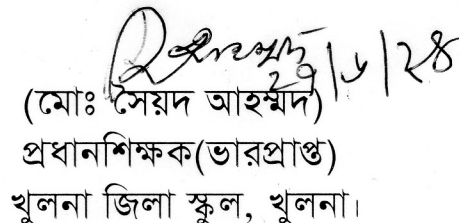 ২৭/৬/২৪
(মোঃ সৈয়দ আহম্মদ)
প্রধানশিক্ষক(ভারপ্রাপ্ত)
খুলনা জিলা স্কুল, খুলনা।